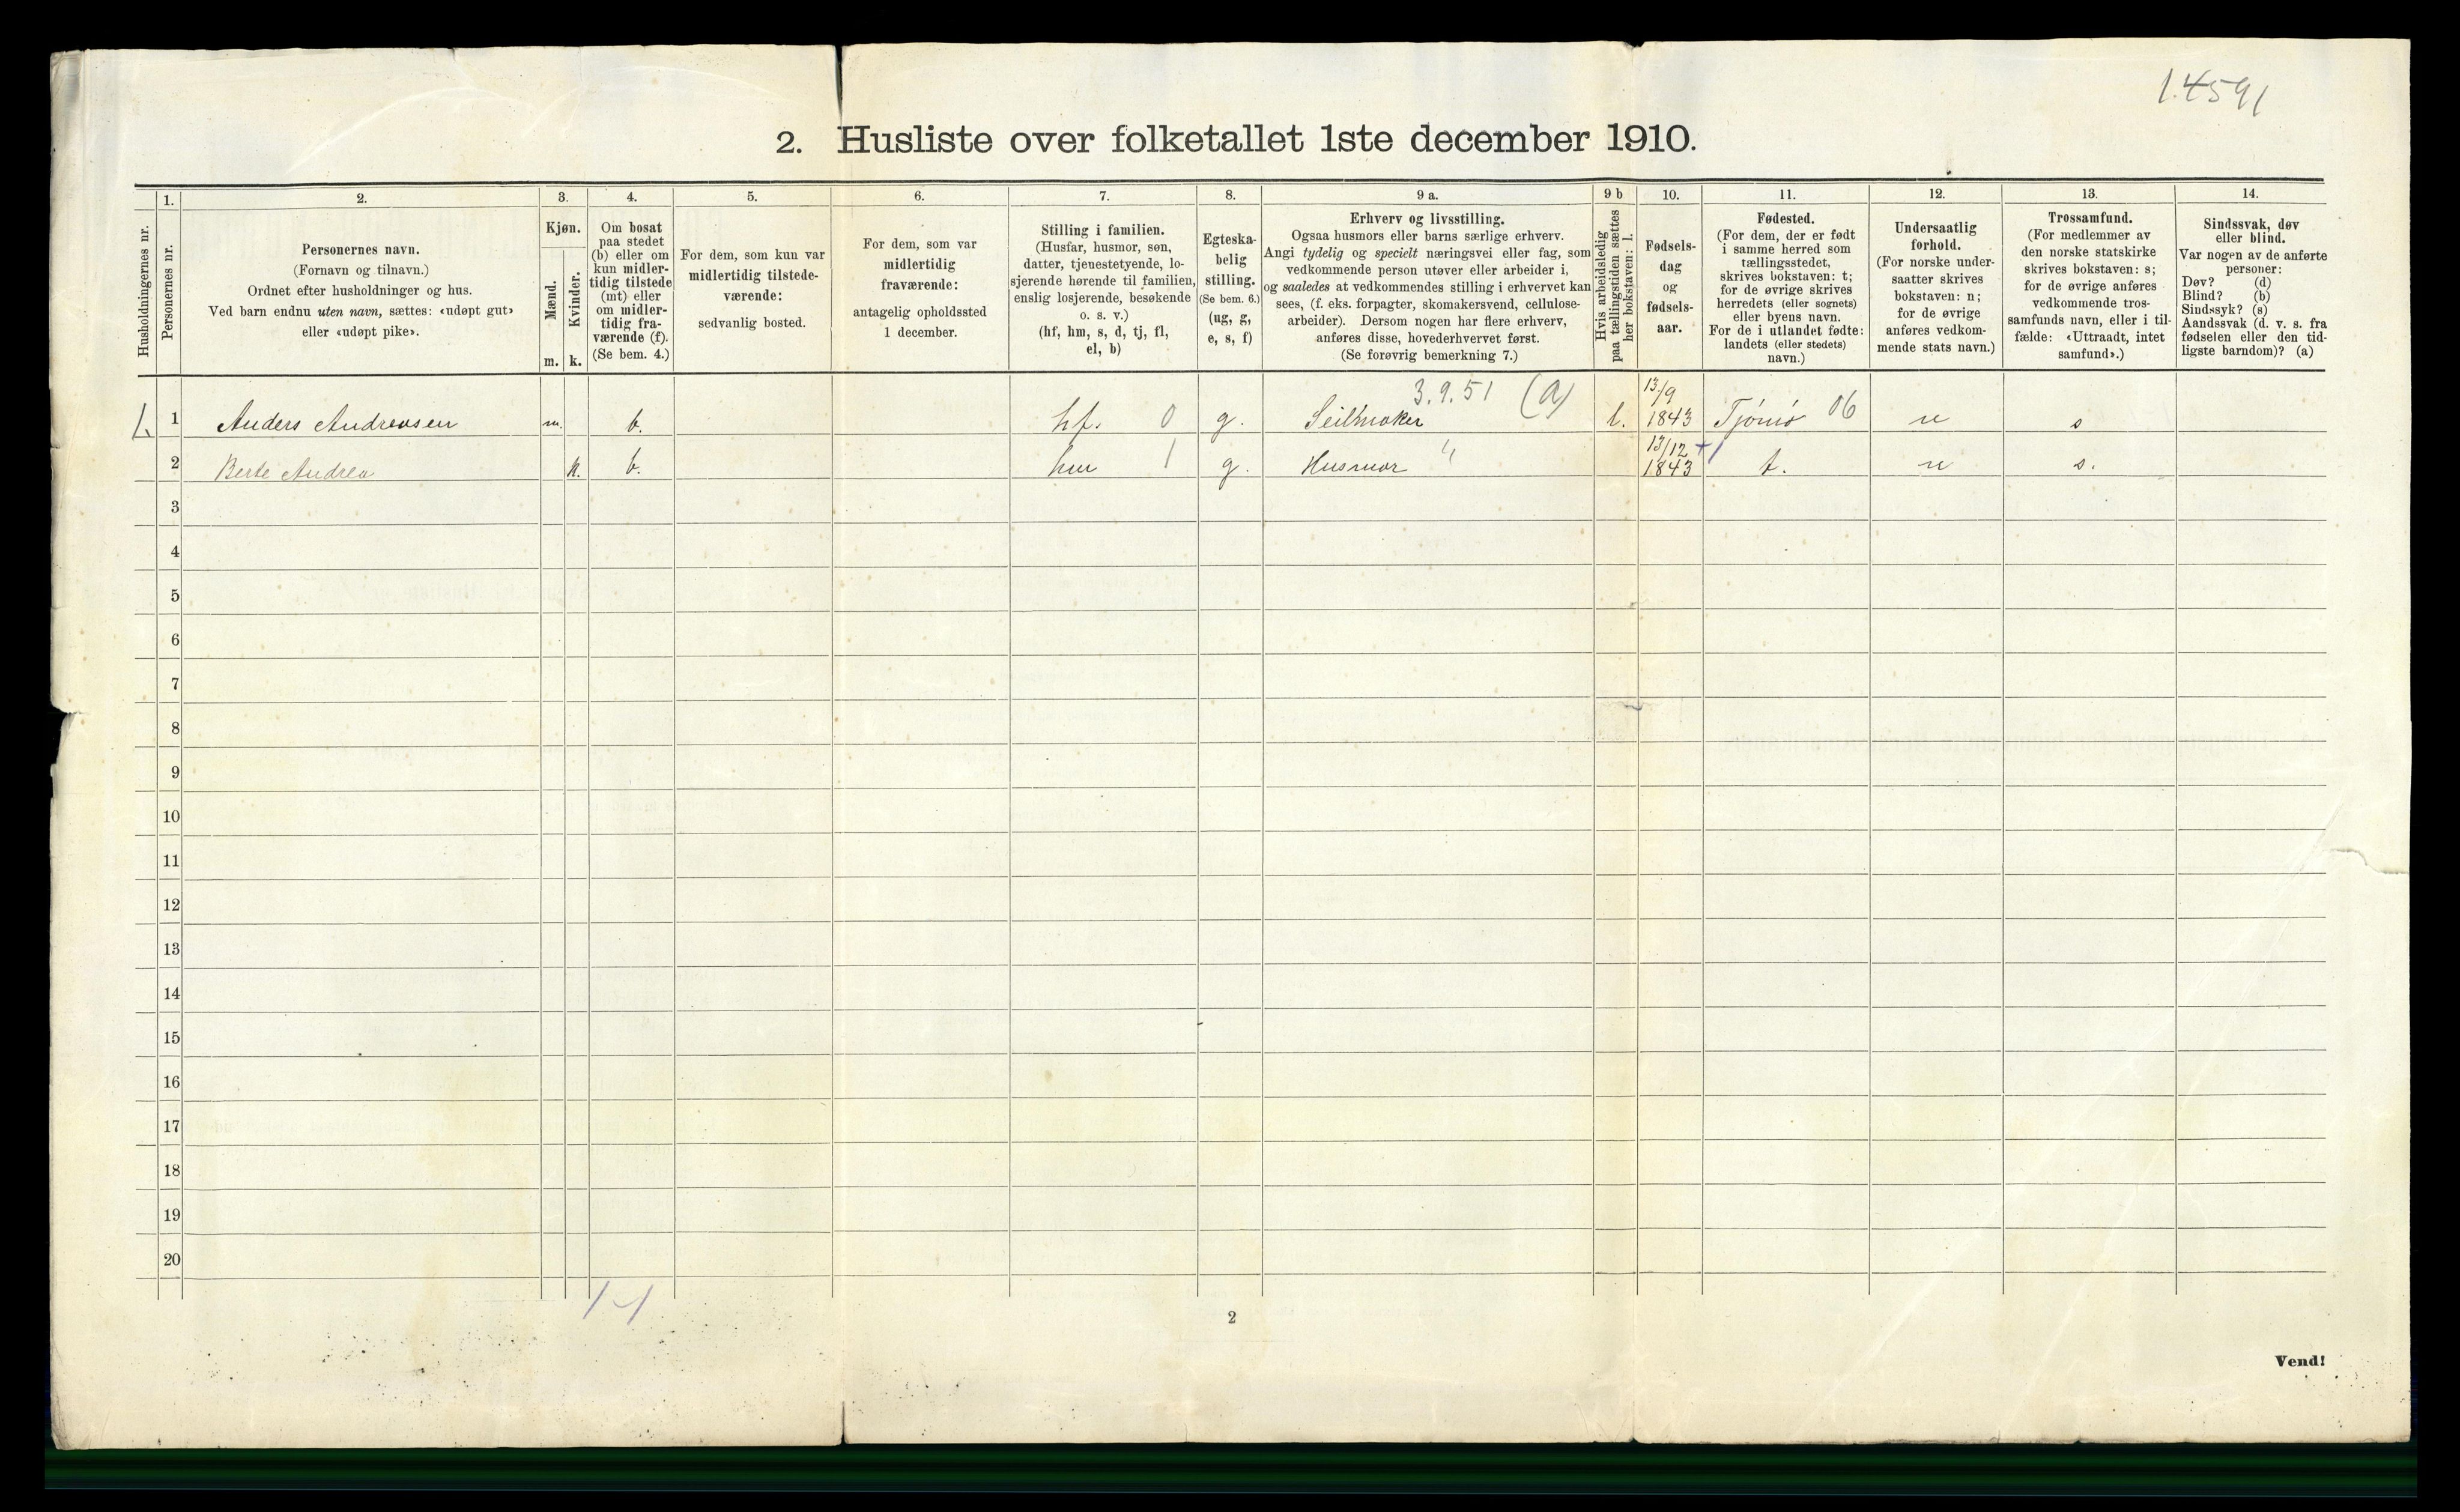 1.4591
2. Husliste over folketallet 1ste december 1910.
Husholdningernes nr.
1.
Personernes nr.
2.
Personernes navn.
(Fornavn og tilnavn.)
Ordnet efter husholdninger og hus.
Ved barn endnu uten navn, sættes: «udøpt gut»
eller «udøpt pike».
3.
Kjøn.
Mænd.
m.
Kvinder.
k.
4.
Om bosat
paa stedet
(b) eller om
kun midler-
tidig tilstede
(mt) eller
om midler-
tidig fra-
værende (f).
(Se bem. 4.)
5.
For dem, som kun var
midlertidig tilstede-
værende:
sedvanlig bosted.
6.
For dem, som var
midlertidig
fraværende:
antagelig opholdssted
1 december.
7.
Stilling i familien.
(Husfar, husmor, søn,
datter, tjenestetyende, lo-
sjerende hørende til familien,
enslig losjerende, besøkende
o. s. v.)
(hf, hm, s, d, tj, fl,
el, b)
8.
Egteska-
belig
stilling.
(Se bem. 6.)
(ug, g,
e, s, f)
9 a.
Erhverv og livsstilling.
Ogsaa husmors eller barns særlige erhverv.
Angi tydelig og specielt næringsvei eller fag, som
vedkommende person utøver eller arbeider i,
og saaledes at vedkommendes stilling i erhvervet kan
sees, (f. eks. forpagter, skomakersvend, cellulose-
arbeider). Dersom nogen har flere erhverv,
anføres disse, hovederhvervet først.
(Se forøvrig bemerkning 7.)
9 b
Hvis arbeidsledig
paa tællingstiden sættes
her bokstaven: l.
10.
Fødsels-
dag
og
fødsels-
aar.
11.
Fødested.
(For dem, der er født
i samme herred som
tællingsstedet,
skrives bokstaven: t;
for de øvrige skrives
herredets (eller sognets)
eller byens navn.
For de i utlandet fødte:
landets (eller stedets)
navn.)
12.
Undersaatlig
forhold.
(For norske under-
saatter skrives
bokstaven: n;
for de øvrige
anføres vedkom-
mende stats navn.)
13.
Trossamfund.
(For medlemmer av
den norske statskirke
skrives bokstaven: s;
for de øvrige anføres
vedkommende tros-
samfunds navn, eller i til-
fælde: «Uttraadt, intet
samfund».)
14.
Sindssvak, døv
eller blind.
Var nogen av de anførte
personer:
Døv? (d)
Blind? (b)
Sindssyk? (s)
Aandssvak (d. v. s. fra
fødselen eller den tid-
ligste barndom)? (a)
3.9.51 (a) 13/9
1 Anders Andreasen m. b. hf. 0 g. Seilmaker l. 1843 Tjömö 06 n s
13/12
2 Berte Andrea k. b. hm 1 g. Husmor " 1843 t. n s.
3
4
5
6
7
8
9
10
11
12
13
14
15
16
17
18
19
20
2
Vend!